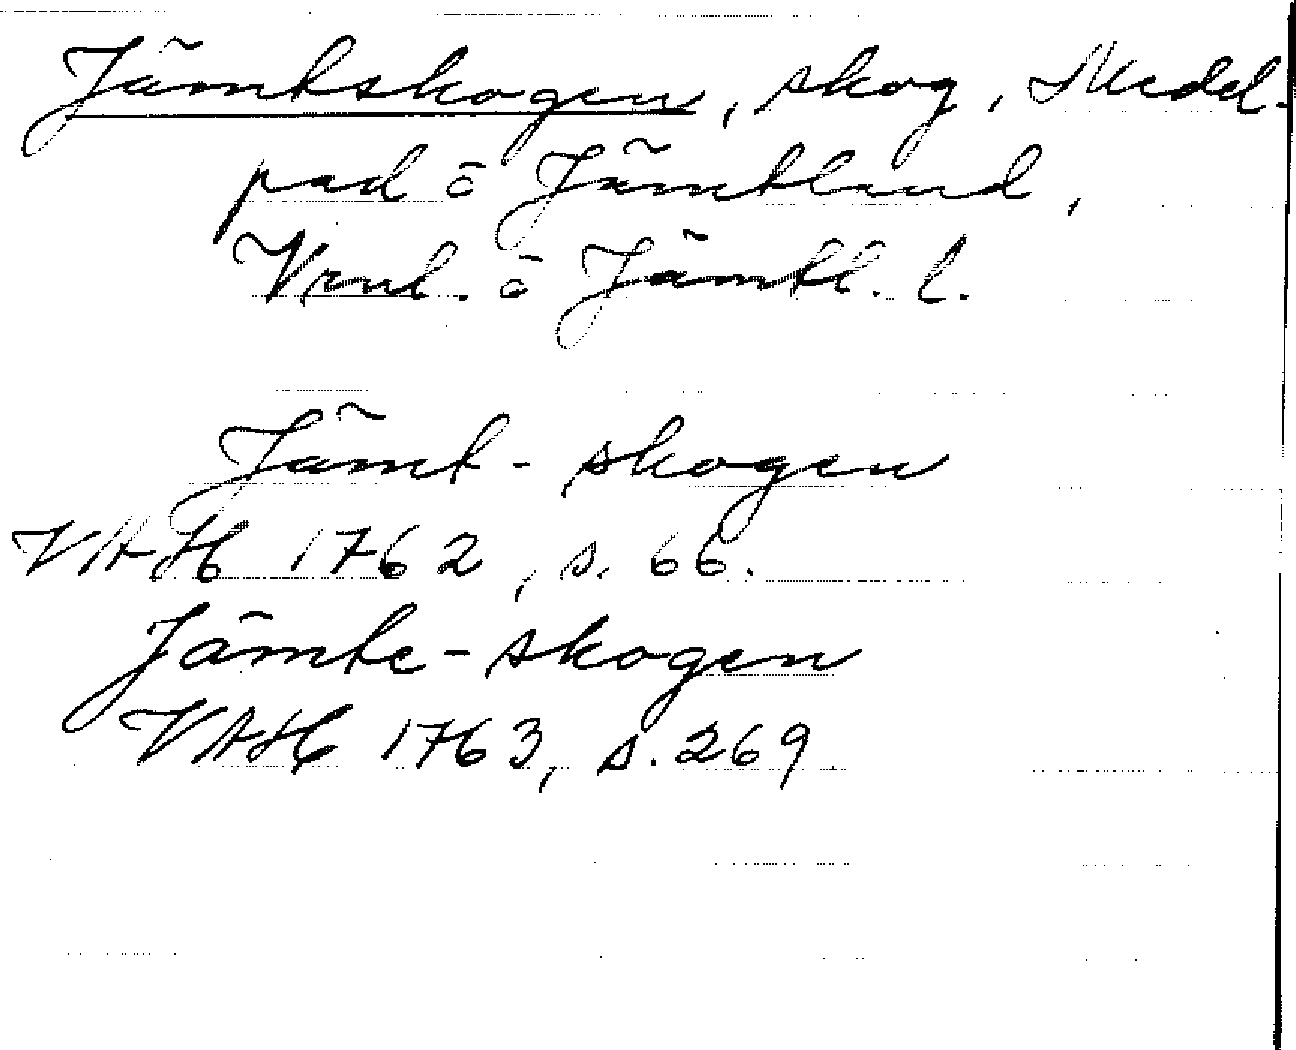 Jämtskogen, skog, Medel-
pad o Jämtland,
Vrnl. o Jämtl. l.
Jämt-skogen
VAH 1762, s. 66.
Jämte-skogen
VAH 1763, s. 269.